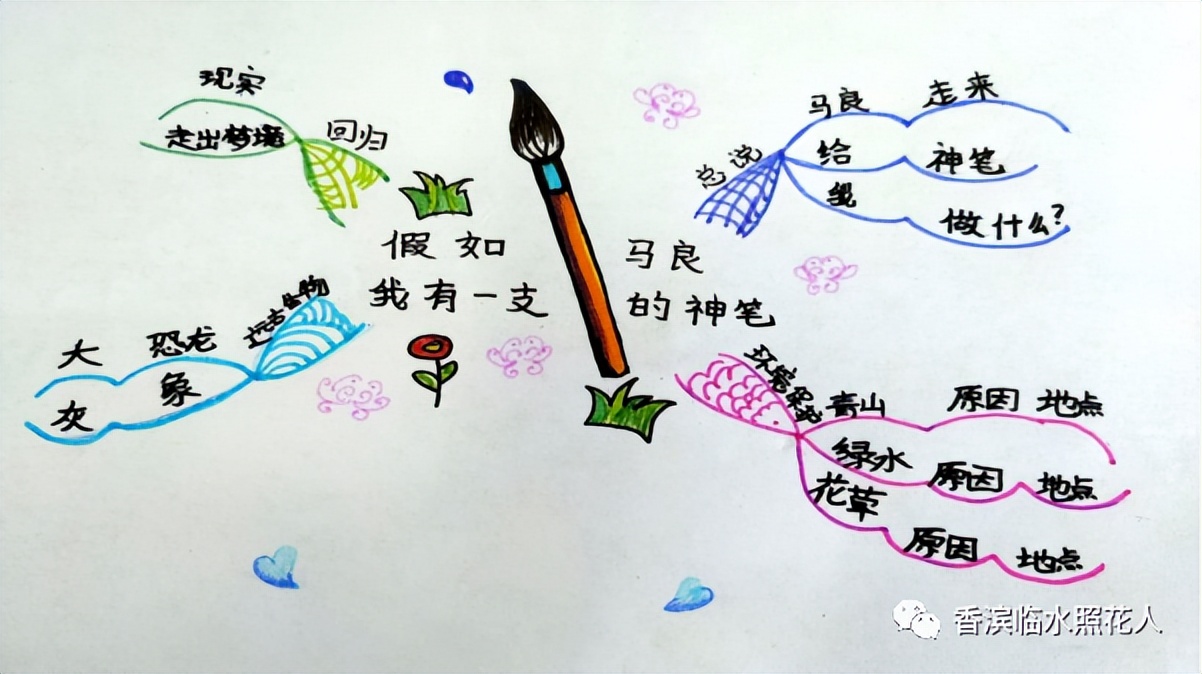 假如 马良
我有一支 的神笔
总说
马良 走来
给 神笔
我 做什么?
环境
青山 原因 地点
绿水 原因 地点
花草 原因 地点
远古生物
大 恐龙
灰 象
回归
现实
走出梦境
香滨临水照花人